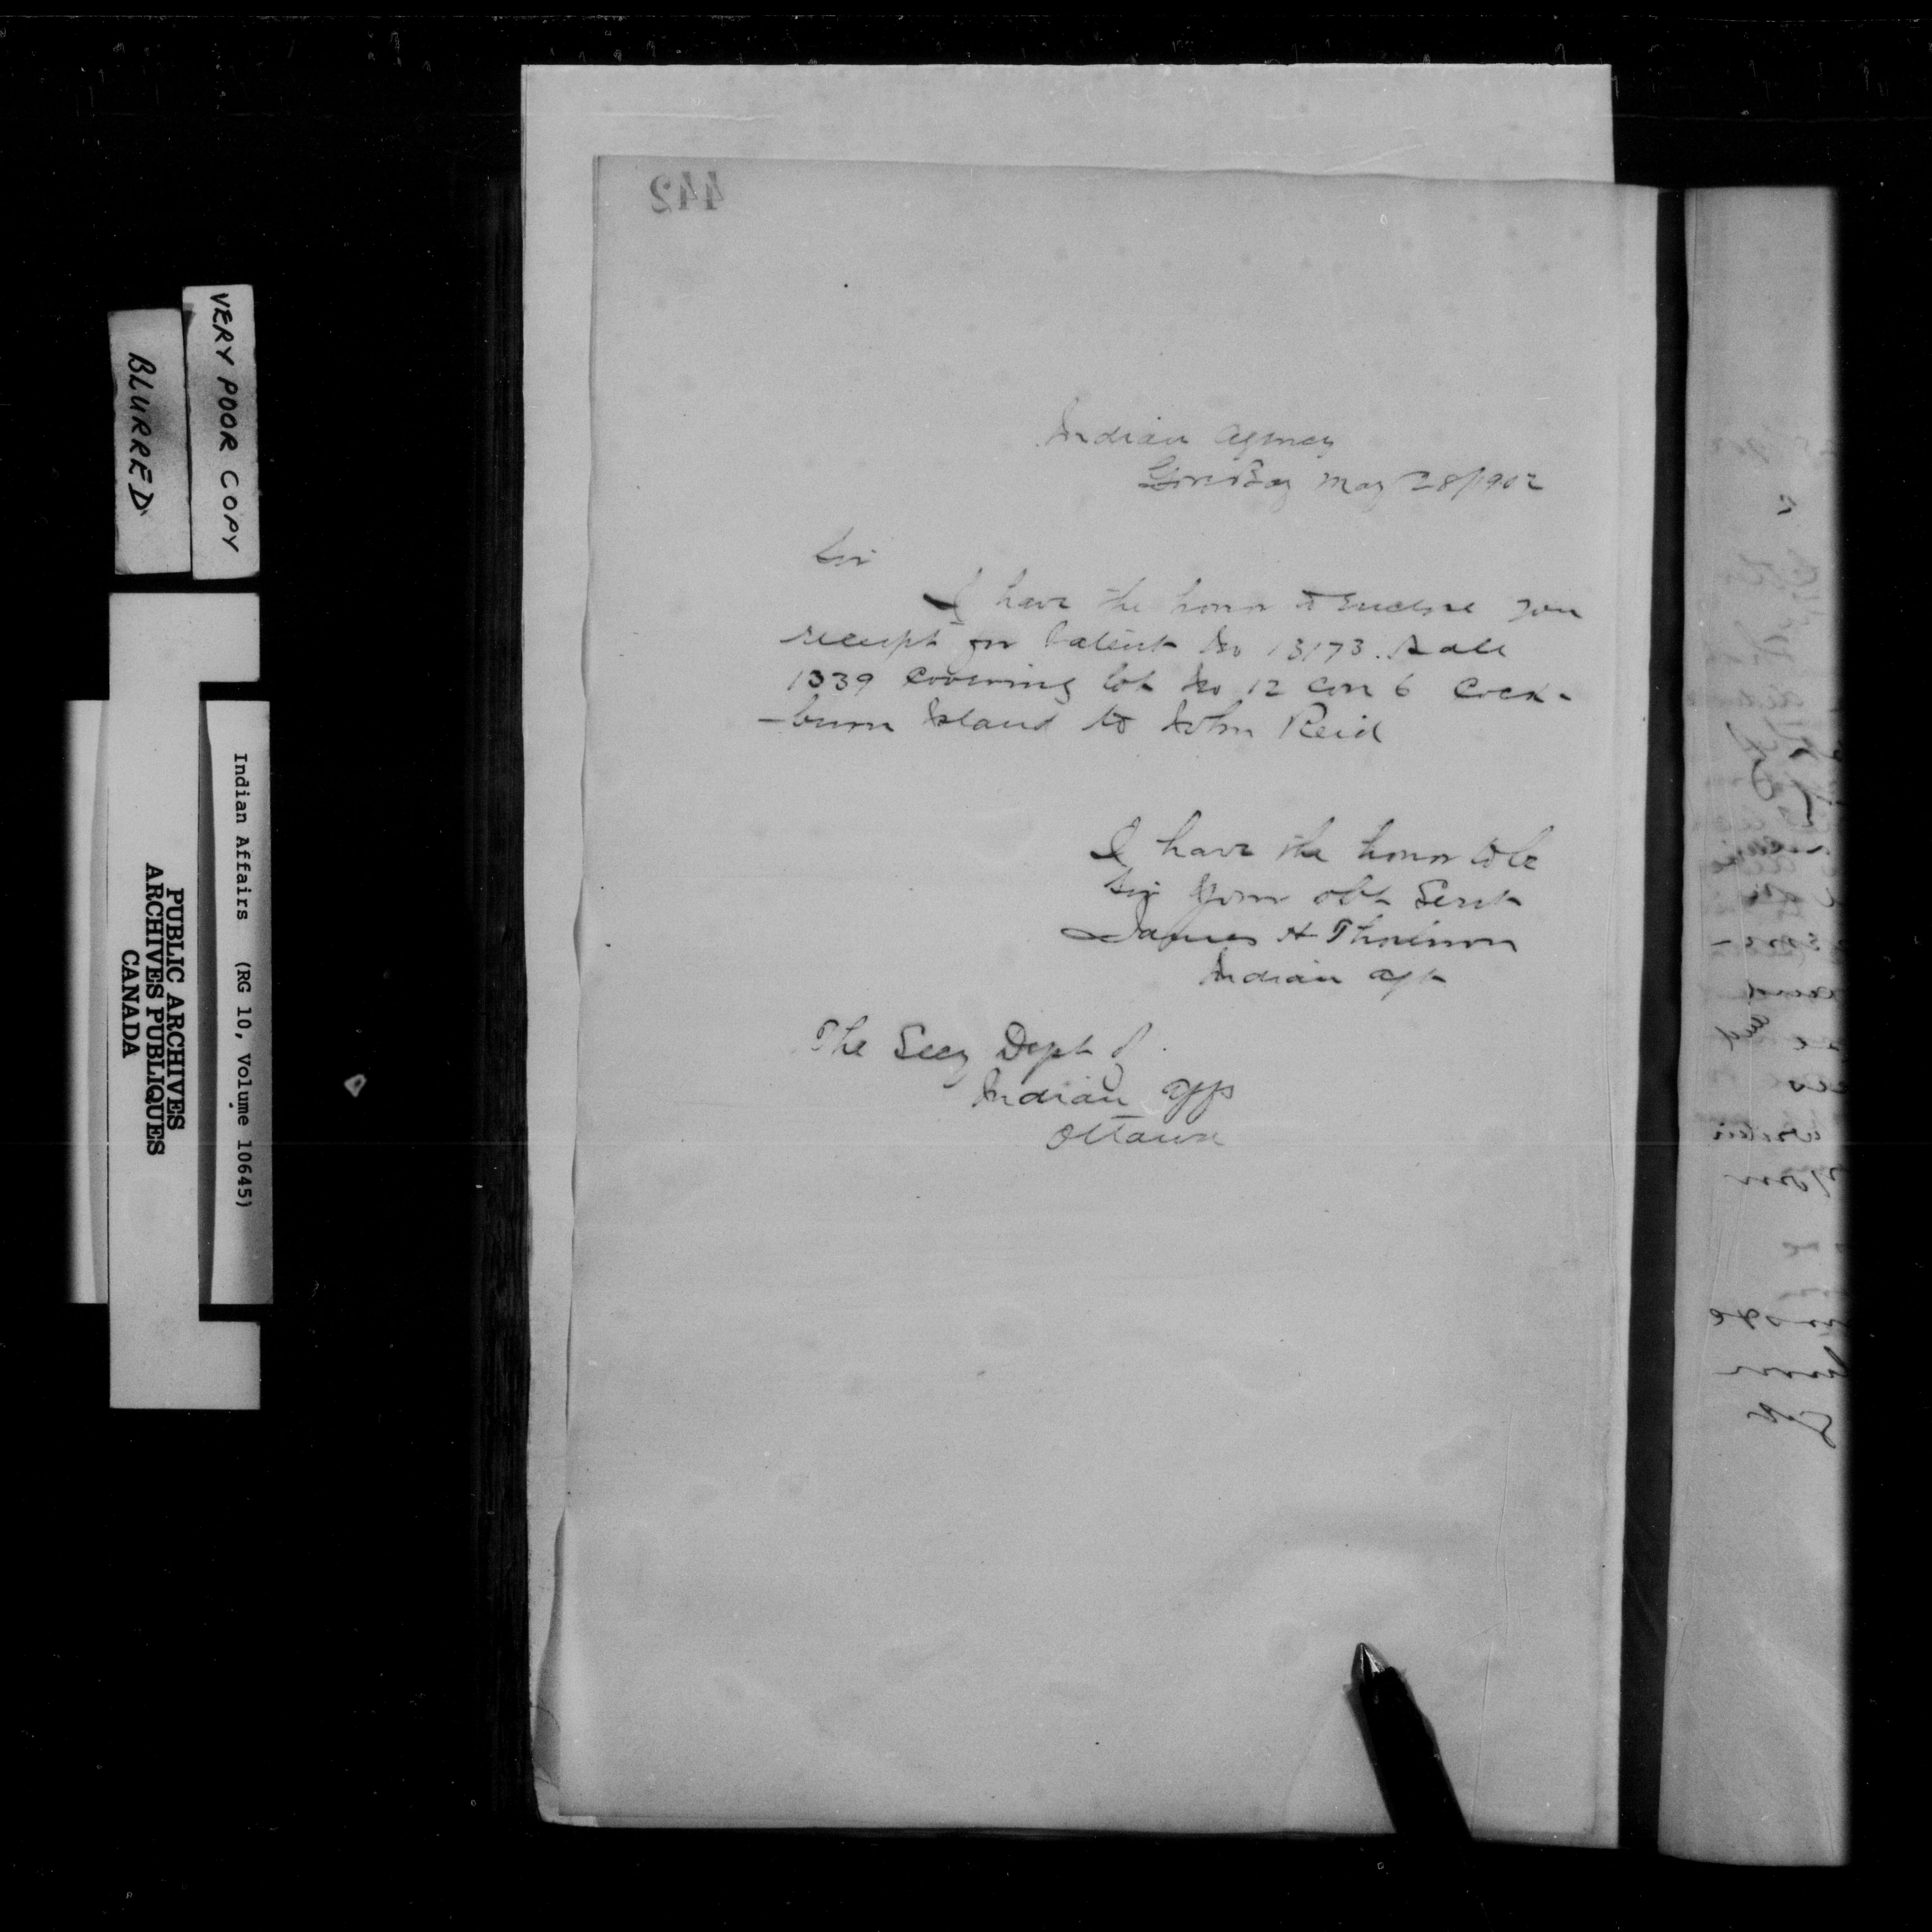 442
Indian Agency
Gore Bay May 28/1902
Sir
I have the honor to enclose you
receipt for Patent No 13173. Sale
1339 covering lot No 12 con 6 Cock-
-burn Island to John Reid
I have the honor to be
Sir Your obt Servt
James H Thorburn
Indian Agt
The Secy Dept of
Indian Affs
Ottawa
VERY POOR COPY
BLURRED
Indian Affairs (RG 10, Volume 10645)
PUBLIC ARCHIVES
ARCHIVES PUBLIQUES
CANADA